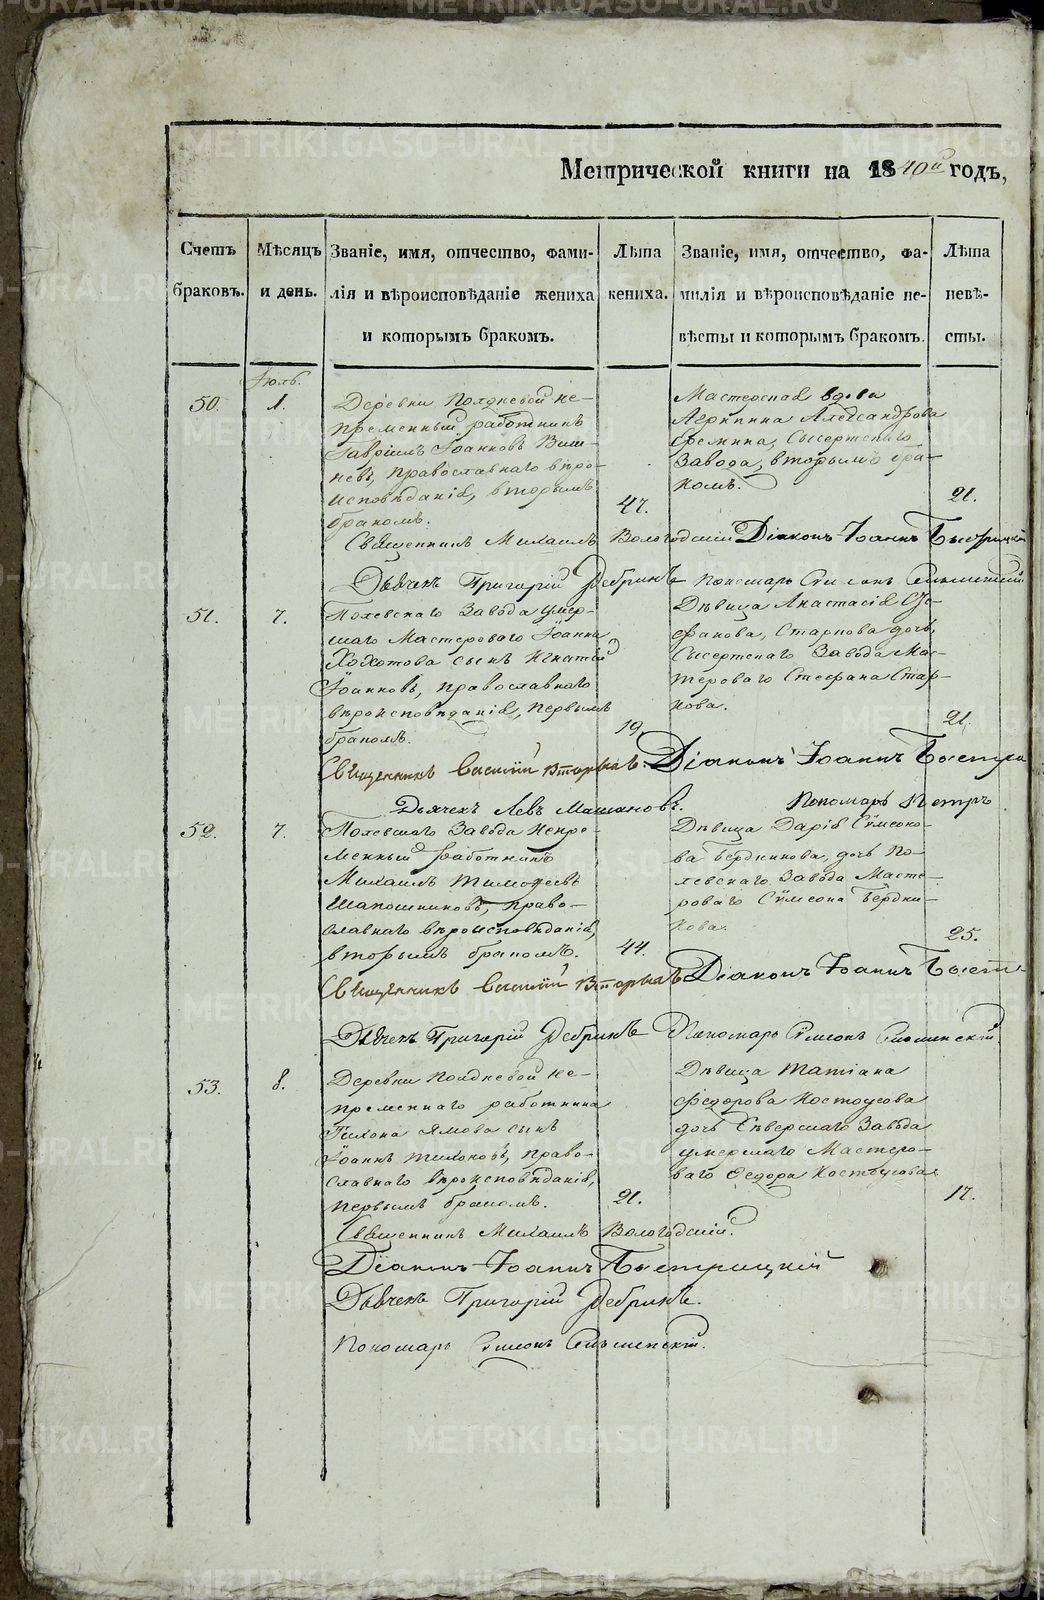 Метрической книги на 1840й годъ,
Счетъ браковъ.
Мѣсяцъ и день.
Званіе, имя, отчество, фами-
лія и вѣроисповѣданіе жениха
и которымъ бракомъ.
Лѣта жениха.
Званіе, имя, отчество, фа-
милія и вѣроисповѣданіе не-
вѣсты и которымъ бракомъ.
Лѣта невѣ-
сты.
Іюль.
50.
1.
Деревни Полдневой не-
пременный работникъ
Гавріилъ Іоанновъ Виш-
невъ, православнаго вѣро-
исповѣданія, вторымъ
бракомъ.
47.
Мастерская вдова
Агрипина Александрова
Еремина, Сысертскаго
Завода, вторымъ бра-
комъ.
21.
Священникъ Михаилъ Вологодскій Діаконъ Іоаннъ Быстрицкій
Дьячекъ Григорій Дебринъ Пономарь Симеонъ
51.
7.
Полевскаго Завода умер-
шаго Мастероваго Іоанна
Хохотова сынъ Игнатій
Іоанновъ, православнаго
вѣроисповѣданія, первымъ
бракомъ.
19.
Дѣвица Анастасія Сте-
фанова, Старкова дочь,
Сысертскаго Завода Мас-
тероваго Стефана Стар-
кова.
21.
Священникъ Василій Діаконъ Іоаннъ
Дьячекъ Левъ Пономарь Петръ
52.
7.
Полевскаго Завода Непре-
менный работникъ
Михаилъ Тимофеевъ
Шапошниковъ, право-
славнаго вѣроисповѣданія,
вторымъ бракомъ.
44.
Дѣвица Дарія Сѵмеоно-
ва Бердникова, дочь По-
левскаго Завода Масте-
роваго Сѵмеона Бердни-
кова.
25.
Священникъ Василій Діаконъ Іоаннъ
Дьячекъ Григорій Дебринъ Пономарь Симеонъ
53.
8.
Деревни Полдневой не-
пременнаго работника
Тихона Ямова сынъ
Іоаннъ Тихоновъ, право-
славнаго вѣроисповѣданія,
первымъ бракомъ.
21.
Дѣвица Татіана
Федорова Костоусова
дочь Сѣверскаго Завода
умершаго Мастеро-
ваго Федора Костоусова
17.
Священникъ Михаилъ Вологодскій.
Діаконъ Іоаннъ Быстрицкій
Дьячекъ Григорій Дебринъ.
Пономарь Симеонъ
METRIKI.GASO-URAL.RU